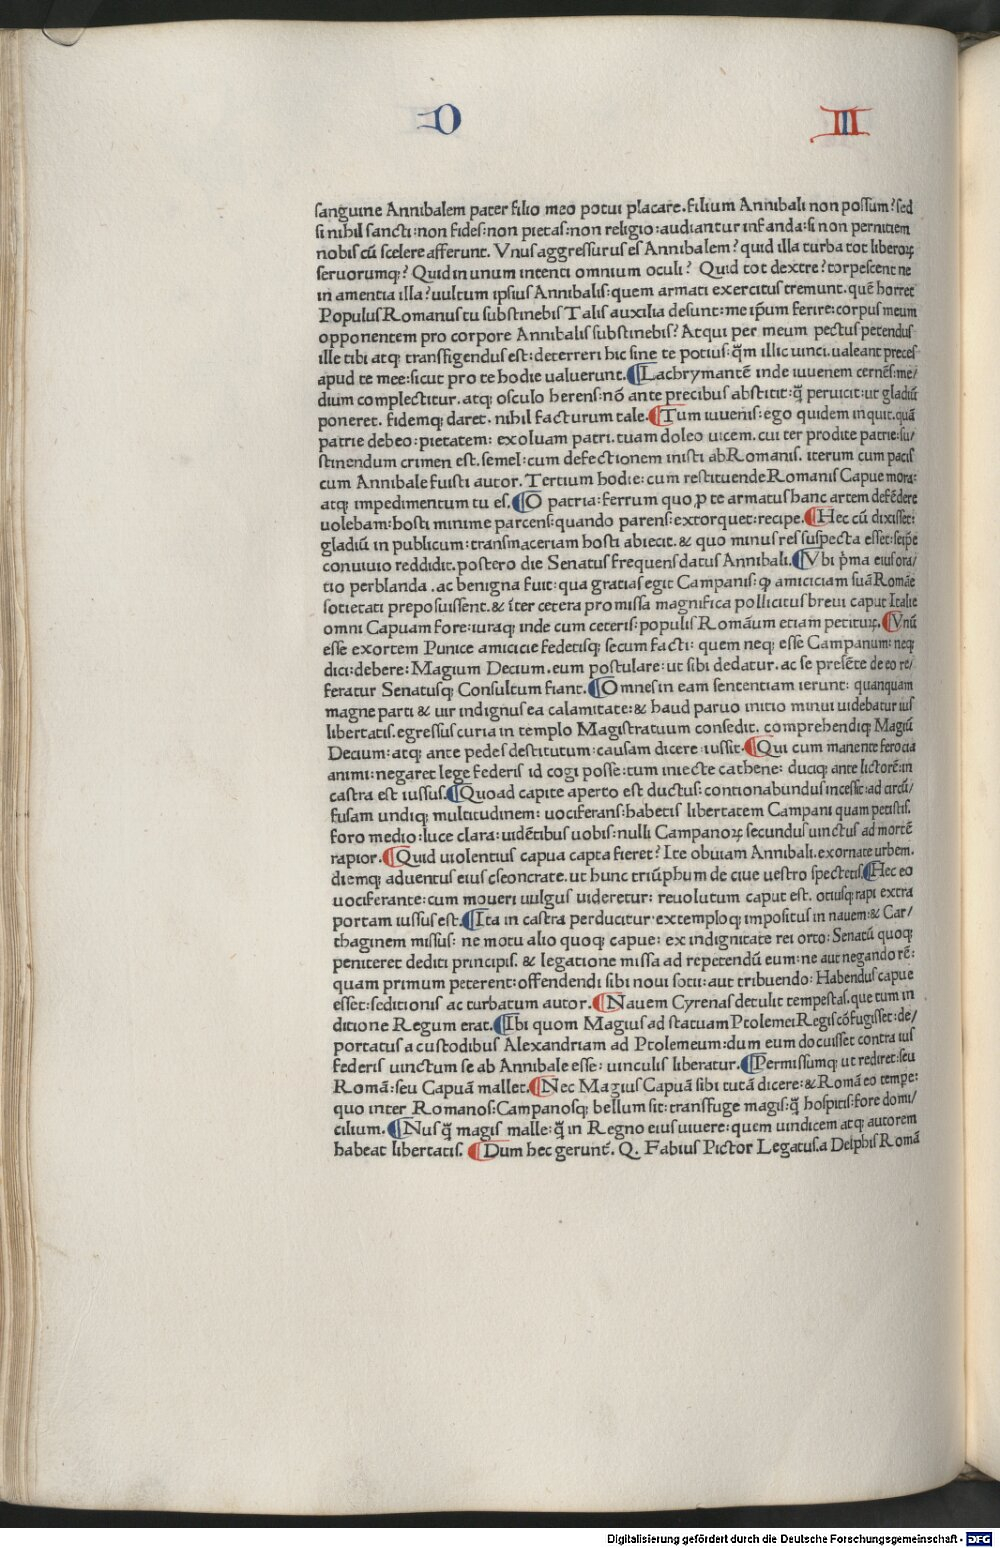 D III
sanguine Annibalem pater filio meo potui placare. filium Annibali non possum? sed
si nihil sancti: non fides: non pietas: non religio: audiantur infanda: si non pernitiem
nobis cū scelere afferunt. Vnus aggressurus es Annibalem? quid illa turba tot liberoꝝ
seruorumqꝫ? Quid in unum intenti omnium oculi? Quid tot dextre? torpescent ne
in amentia illa? uultum ipsius Annibalis: quem armati exercitus tremunt. quē horret
Populus Romanus tu substinebis Talis auxilia desunt: me ip̄um ferire: corpus meum
opponentem pro corpore Annibalis substinebis? Atqui per meum pectus petendus
ille tibi atqꝫ transfigendus est: deterreri hic sine te potius: q̄m illic uinci. ualeant preces
apud te mee: sicut pro te hodie ualuerunt. ¶Lachrymantē inde iuuenem cernēs: me/
dium complectitur. atqꝫ osculo herens: nō ante precibus abstitit: q̄ peruicit: ut gladiū
poneret. fidemqꝫ daret. nihil facturum tale. ¶Tum iuuenis: ego quidem inquit. quā
patrie debeo: pietatem: exoluam patri. tuam doleo uicem. cui ter prodite patrie: su/
stinendum crimen est. semel: cum defectionem inisti ab Romanis. iterum cum pacis
cum Annibale fuisti autor. Tertium hodie: cum restituende Romanis Capue mora:
atqꝫ impedimentum tu es. ¶O patria: ferrum quo ꝓ te armatus hanc artem defēdere
uolebam: hosti minime parcens: quando parens: extorquet: recipe. ¶Hec cū dixisset:
gladiū in publicum: trans maceriam hosti abiecit. & quo minus res suspecta esset: seip̄e
conuiuio reddidit. postero die Senatus frequens datus Annibali. ¶Vbi p̄ma eius ora/
tio perblanda. ac benigna fuit: qua gratias egit Campanis: ꝙ amiciciam suā Romāe
sotietati preposuissent. & īter cetera promissa magnifica pollicitus breui caput Italie
omni Capuam fore: iuraqꝫ inde cum ceteris: populis Romāum etiam petituꝝ. ¶Vnū
esse exortem Punice amicicie federisqꝫ secum facti: quem neqꝫ esse Campanum: neqꝫ
dici: debere: Magium Decium. eum postulare: ut sibi dedatur. ac se presēte de eo re/
feratur Senatusqꝫ Consultum fiant. ¶Omnes in eam sententiam ierunt: quanquam
magne parti & uir indignus ea calamitate: & haud paruo initio minui uidebatur ius
libertatis. egressus curia in templo Magistratuum consedit. comprehendiqꝫ Magiū
Decium: atqꝫ ante pedes destitutum: causam dicere iussit. ¶Qui cum manente ferocia
animi: negaret lege federis id cogi posse: tum iniecte cathene: duciqꝫ ante lictorē: in
castra est iussus. ¶Quoad capite aperto est ductus: contionabundus incessit: ad circū/
fusam undiqꝫ multitudinem: uociferans: habetis libertatem Campani quam petistis.
foro medio: luce clara: uidētibus uobis: nulli Campanoꝝ secundus uinctus ad mortē
rapior. ¶Quid uiolentius capua capta fieret? Ite obuiam Annibali. exornate urbem.
diemqꝫ aduentus eius cōseoncrate. ut hunc triūphum de ciue uestro spectetis. ¶Hec eo
uociferante: cum moueri uulgus uideretur: reuolutum caput est. otiusqꝫ rapi extra
portam iussus est. ¶Ita in castra perducitur. extemploqꝫ impositus in nauem: & Car/
thaginem missus: ne motu alio quoqꝫ capue: ex indignitate rei orto: Senatū quoqꝫ
peniteret dediti principis. & legatione missa ad repetendū eum: ne aut negando rē:
quam primum peterent: offendendi sibi noui sotii: aut tribuendo: Habendus capue
esset: seditionis ac turbatum autor. ¶Nauem Cyrenas detulit tempestas. que tum in
ditione Regum erat. ¶Ibi quom Magius ad statuam Ptolemei Regis cōfugisset: de/
portatus a custodibus Alexandriam ad Ptolemeum: dum eum docuisset contra ius
federis uinctum se ab Annibale esse: uinculis liberatur. ¶Permissumqꝫ ut rediret: seu
Romā: seu Capuā mallet. ¶Nec Magius Capuā sibi tutā dicere: & Romā eo tempe:
quo inter Romanos: Campanosqꝫ bellum sit: transfuge magis: q̄ hospitis: fore domi/
cilium. ¶Nus q̄ magis malle: q̄ in Regno eius uiuere: quem uindicem atqꝫ autorem
habeat libertatis. ¶Dum hec gerunt̄. Q. Fabius Pictor Legatus. a Delphis Romā
Digitalisierung gefördert durch die Deutsche Forschungsgemeinschaft - DFG